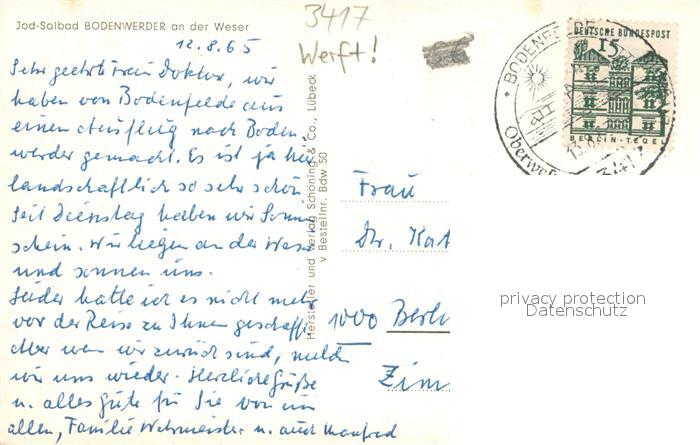 Jod-Solbad BODENWERDER an der Weser
3417
Werft!
12.8.65
Sehr geehrte Frau Doktor, wir
haben von Bodenfelde aus
einen Ausflug nach Boden-
werder gemacht. Es ist ja hier
landschaftlich so sehr schön
Seit Dienstag haben wir Sonnen
schein. Wir liegen an der Weser
und sonnen uns.
Leider hatte ich es nicht mehr
vor der Reise zu Ihnen geschafft.
Aber wenn wir zurück sind, melden
wir uns wieder. Herzliche Grüße
u. alles Gute für Sie von uns
allen, Familie Wehrmeister u. auch Manfred
Hersteller und Verlag Schöning & Co., Lübeck
v Bestellnr. Bdw 50
DEUTSCHE BUNDESPOST
15
BERLIN-TEGEL
BODENFELDE
3417
Frau
Dr. Kat
1000 Berlin
privacy protection
Datenschutz